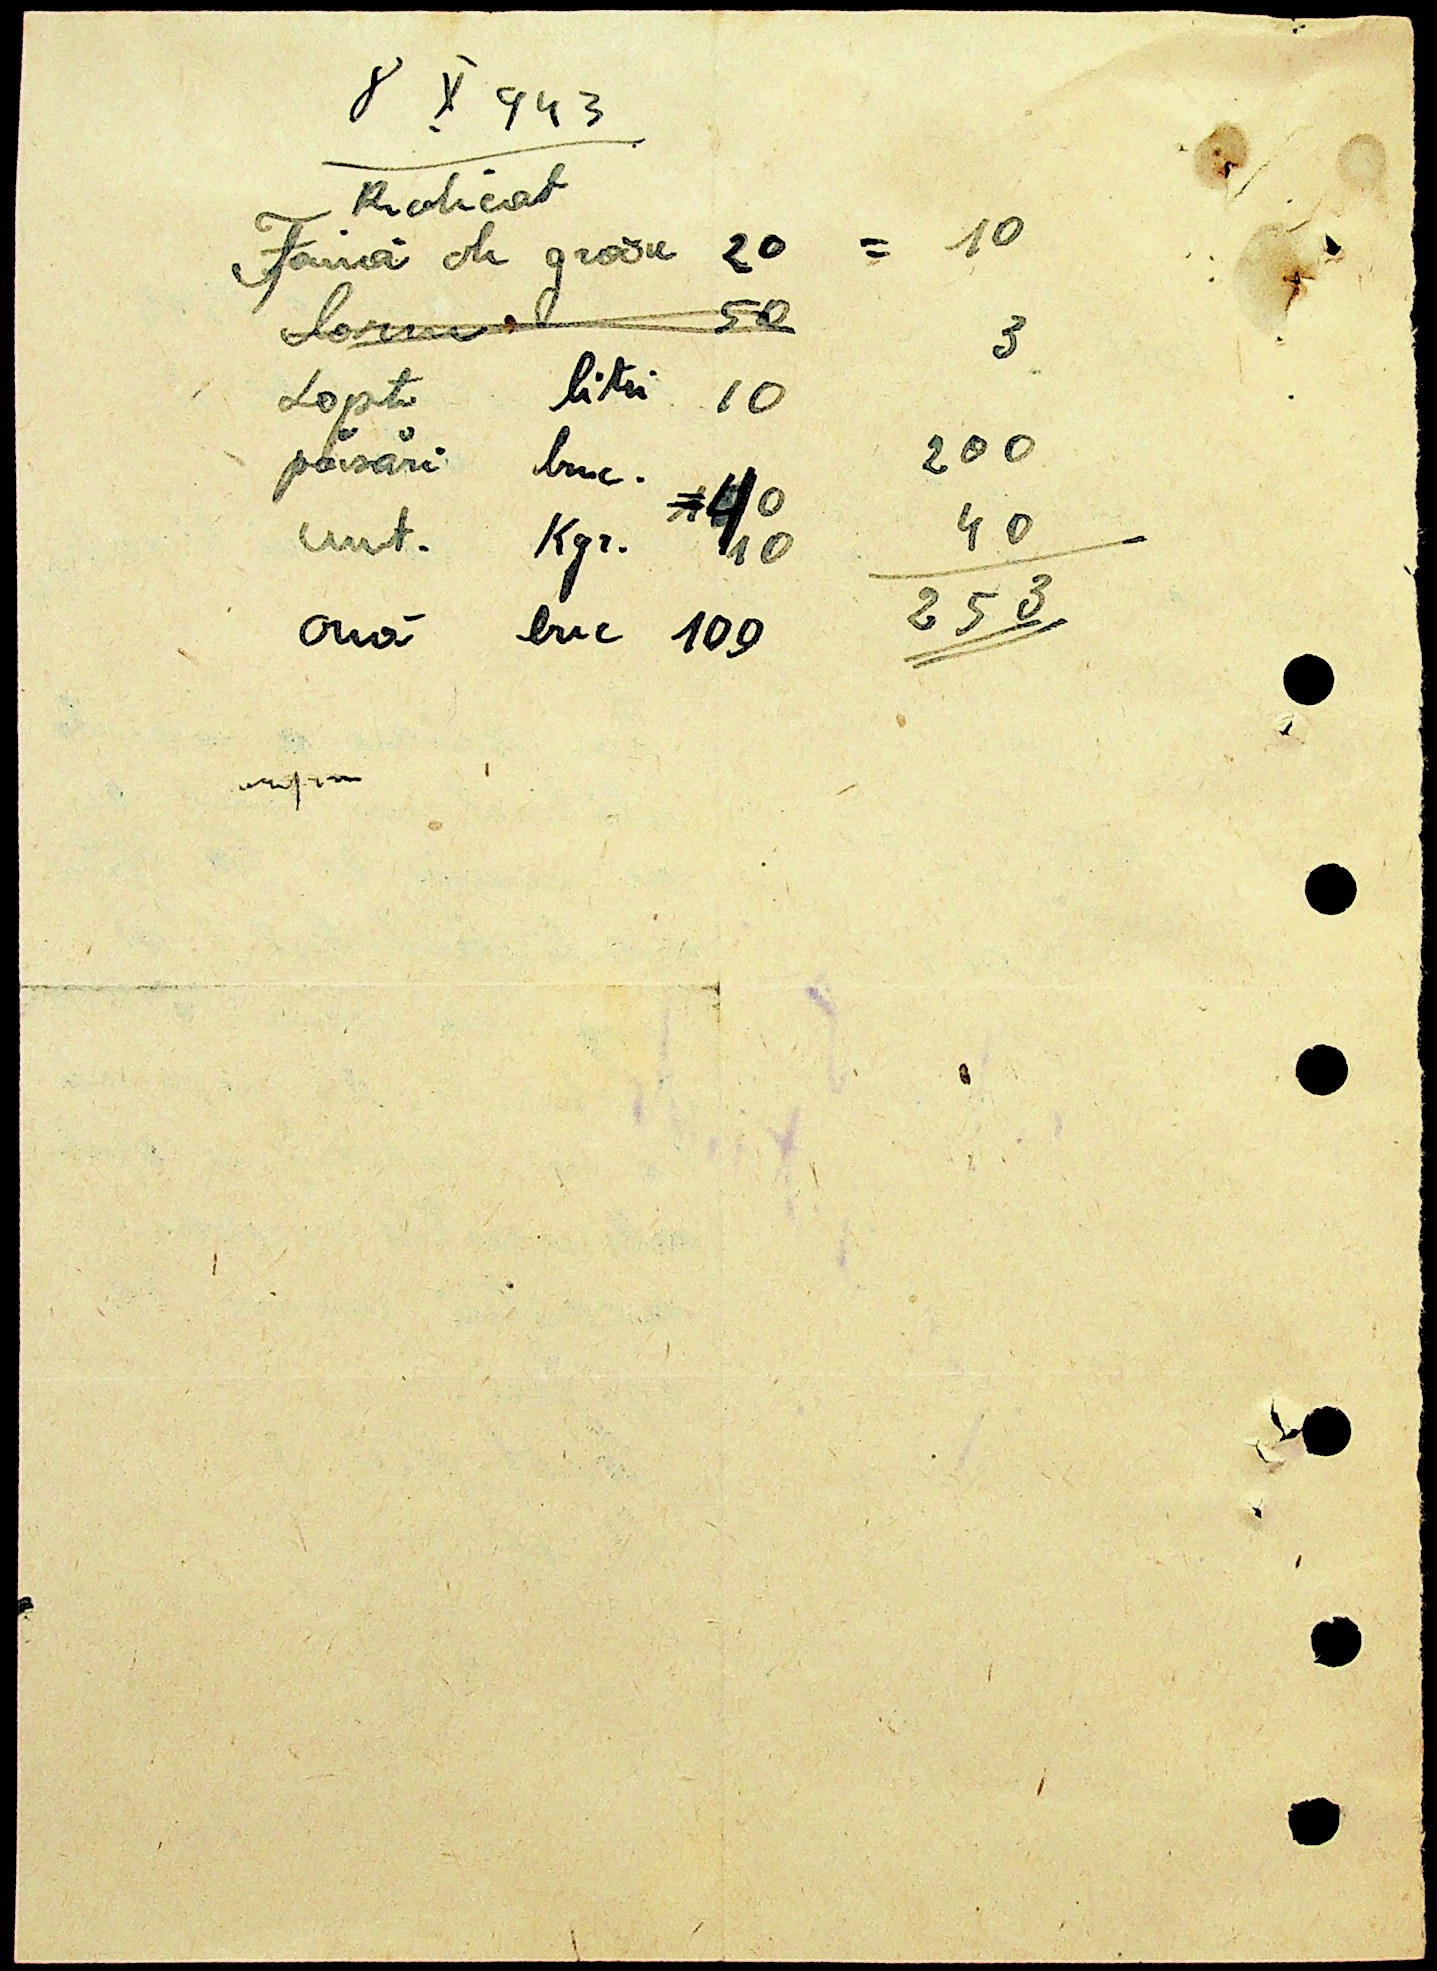 8 X 943
Ridicat
Făină de grâu 20 = 10
50 3
Lapte litri 10
păsări buc. 40 200
unt. Kgr. 10 40
253
ouă buc 100